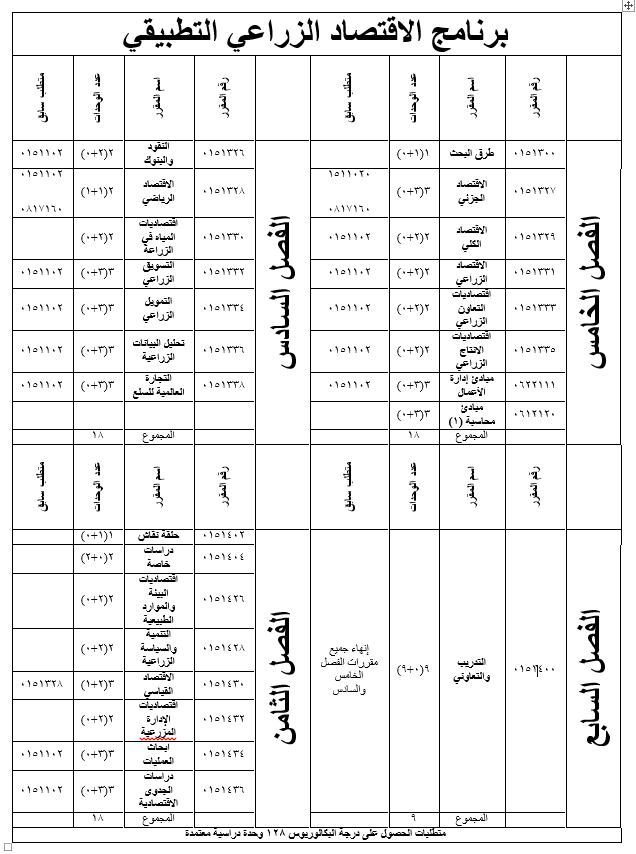 برنامج الاقتصاد الزراعي التطبيقي
الفصل الخامس
رقم المقرر اسم المقرر عدد الوحدات متطلب سابق
٠١٥١٣٠٠ طرق البحث ١(١+٠)
٠١٥١٣٢٧ الاقتصاد الجزئي ٣(٣+٠) ١٥١١٠٢٠ ٠٨١٧١٦٠
٠١٥١٣٢٩ الاقتصاد الكلي ٢(٢+٠) ٠١٥١١٠٢
٠١٥١٣٣١ الاقتصاد الزراعي ٢(٢+٠) ٠١٥١١٠٢
٠١٥١٣٣٣ اقتصاديات التعاون الزراعي ٢(٢+٠) ٠١٥١١٠٢
٠١٥١٣٣٥ اقتصاديات الانتاج الزراعي ٢(٢+٠) ٠١٥١١٠٢
٠٦٢٢١١١ مبادئ إدارة الأعمال ٣(٣+٠) ٠١٥١١٠٢
٠٦١٢١٢٠ مبادئ محاسبة (١) ٣(٣+٠)
المجموع ١٨
الفصل السادس
رقم المقرر اسم المقرر عدد الوحدات متطلب سابق
٠١٥١٣٢٦ النقود والبنوك ٢(٢+٠) ٠١٥١١٠٢
٠١٥١٣٢٨ الاقتصاد الرياضي ٢(١+١) ٠١٥١١٠٢ ٠٨١٧١٦٠
٠١٥١٣٣٠ اقتصاديات المياه في الزراعة ٢(٢+٠)
٠١٥١٣٣٢ التسويق الزراعي ٣(٣+٠) ٠١٥١١٠٢
٠١٥١٣٣٤ التمويل الزراعي ٣(٣+٠) ٠١٥١١٠٢
٠١٥١٣٣٦ تحليل البيانات الزراعية ٣(٣+٠) ٠١٥١١٠٢
٠١٥١٣٣٨ التجارة العالمية للسلع ٣(٣+٠) ٠١٥١١٠٢
المجموع ١٨
الفصل السابع
رقم المقرر اسم المقرر عدد الوحدات متطلب سابق
٠١٥١٤٠٠ التدريب والتعاوني ٩(٠+٩) إنهاء جميع مقررات الفصل الخامس والسادس
المجموع ٩
الفصل الثامن
رقم المقرر اسم المقرر عدد الوحدات متطلب سابق
٠١٥١٤٠٢ حلقة نقاش ١(١+٠)
٠١٥١٤٠٤ دراسات خاصة ٢(٠+٢)
٠١٥١٤٢٦ اقتصاديات البيئة والموارد الطبيعية ٢(٢+٠)
٠١٥١٤٢٨ التنمية والسياسة الزراعية ٢(٢+٠)
٠١٥١٤٣٠ الاقتصاد القياسي ٣(٢+١) ٠١٥١٣٢٨
٠١٥١٤٣٢ اقتصاديات الإدارة المزرعية ٢(٢+٠)
٠١٥١٤٣٤ ابحاث العمليات ٣(٣+٠) ٠١٥١١٠٢
٠١٥١٤٣٦ دراسات الجدوى الاقتصادية ٣(٣+٠) ٠١٥١١٠٢
المجموع ١٨
متطلبات الحصول على درجة البكالوريوس ١٢٨ وحدة دراسية معتمدة